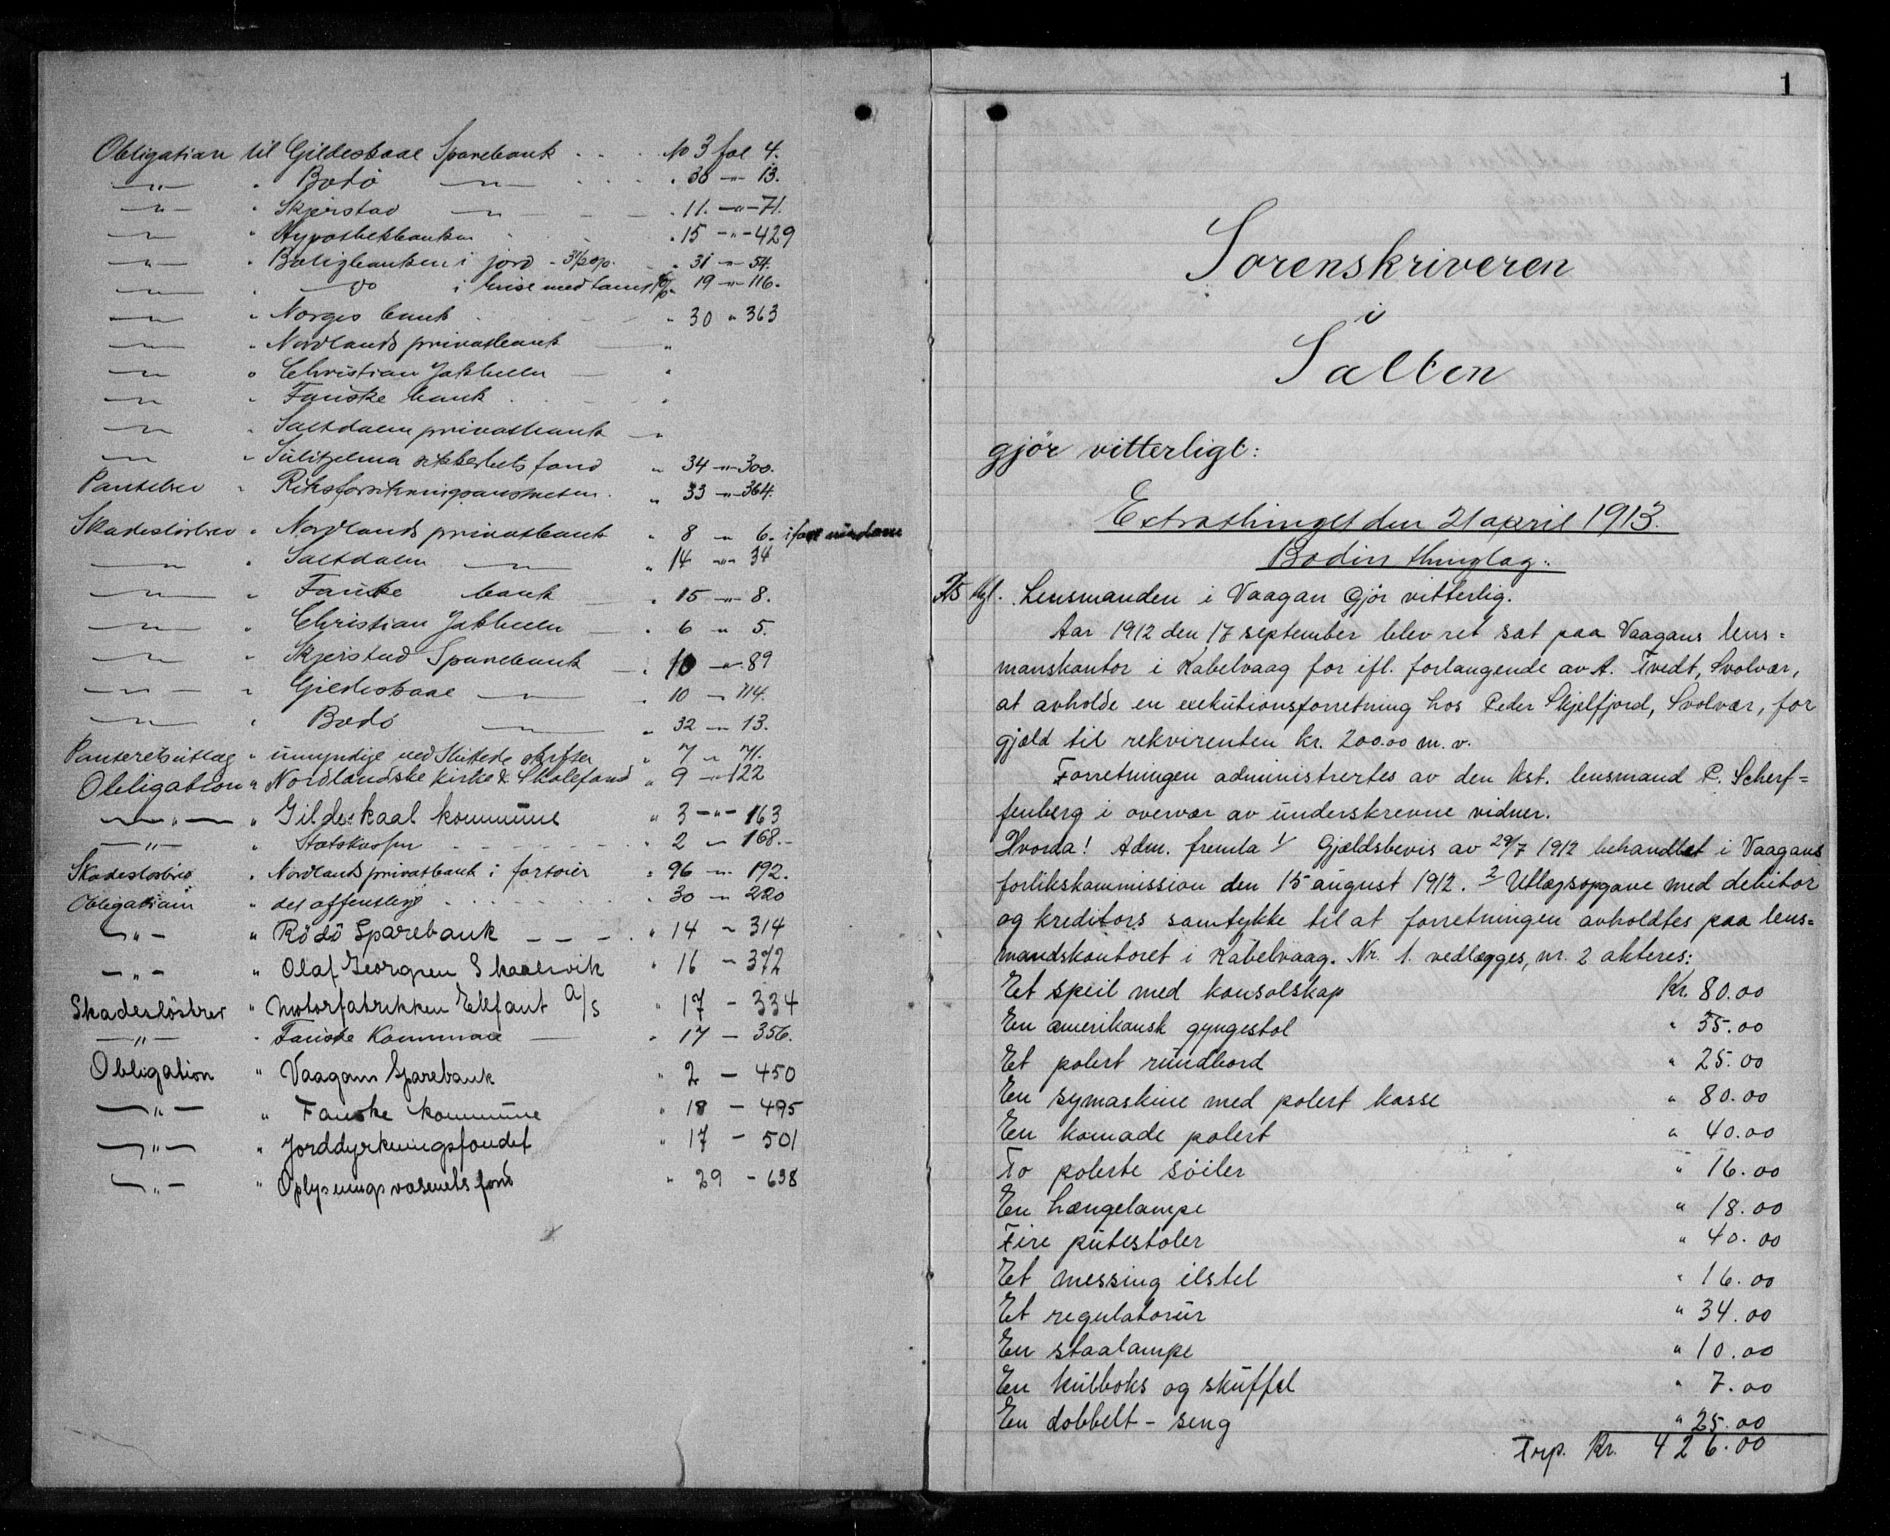 Obligation til Gildeskaal Sparebank . . . No 3 fol 4.
—„— " Bodö —„— . . . " 38 —„— 13.
—„— " Skjerstad —„— — — " 11. —„— 71.
—„— " Hypothekbanken . . " 15 —„— 429
—„— " Boligbanken i jord - 3½ %. " 31 —„— 54.
—„— " —do— i huse med tomt " 19 —„— 116.
—„— " Norges bank . . " 30 „ 363
—„— " Nordlands privatbank — "
—„— " Christian Jakhelln — "
—„— " Fauske bank . . . "
—„— " Saltdalens privatbank — "
—„— " Sulitjelma sikkerhetsfond " 34 —„— 300.
Pantebrev " Riksforsikringsanstalten . " 33 —„— 364.
Skadeslösbrev " Nordlands privatbank " 8 „ 6.
—„— " Saltdalen —„— " 14 —„— 34
—„— " Fauske bank — " 15 —„— 8.
—„— " Christian Jakhelln — " 6 „ 5.
—„— " Skjerstad Sparebank — " 10 —„— 89
—„— " Gildeskaal —„— " 10 —„— 114.
—„— " Bodö —„— " 32 —„— 13.
Panteretsutlæg " umyndige ved Skiftede skifter " 7 „ 71.
Obligation " Nordlandske kirke & Skolefond " 9 —„— 122
—„— " Gildeskaal kommune " 3 —„— 163
—„— " Statskassen - - - - - " 2 „ 168.-
Skadeslösbrev " Nordlands privatbank i fartöier " 96 —„— 192.
Obligation " det offentlige . . . . " 30 —„— 220
—„— " Rödö Sparebank — — — . " 14 — 314
—„— " Olaf Georgsen Skaalsvik " 16 — 372
Skadeslösbrev " Motorfabrikken Elefant A/S " 17 — 334
—„— " Fauske Kommune — " 17 — 356.
Obligation " Vaagans Sparebank " 2 — 450
—„— " Fauske kommune " 18 — 495
—„— " Jorddyrkningsfondet " 17 — 501
—„— " Oplysningsvæsenets fond " 29 — 638
1
Sorenskriveren
i
Salten
gjör vitterligt:
Extrathinget den 21 april 1913.
Bodin thinglag.
Lensmanden i Vaagan gjör vitterlig.
Aar 1912 den 17 september blev ret sat paa Vaagans lens=
manskontor i Kabelvaag for ifl. forlangende av A. Tvedt, Svolvær,
at avholde en exekutionsforretning hos Peder Skjelfjord, Svolvær, for
gjæld til rekvirenten kr. 200.00 m. v.
Forretningen administrertes av den kst. lensmand P. Scherf=
fenberg i overvær av underskrevne vidner.
Hvorda! Adm. fremla 1/ Gjældsbevis av 29/7 1912 behandlet i Vaagans
forlikskommission den 15 august 1912. 2/ Utlægsopgave med debitor
og kreditors samtykke til at forretningen avholdtes paa lens=
mandskontoret i Kabelvaag. Nr. 1. vedlægges, nr. 2 akteres:
Et speil med konsolskap Kr. 80.00
En amerikansk gyngestol " 35.00
Et polert rundbord " 25.00
En symaskine med polert kasse " 80.00
En komade polert " 40.00
To polerte söiler " 16.00
En hængelampe " 18.00
Fire putestoler " 40.00
Et messing ilstel " 16.00
Et regulatorur " 34.00
En staalampe " 10.00
En kulboks og skuffel " 7.00
En dobbelt - seng " 25.00
Trp. Kr. 426.00